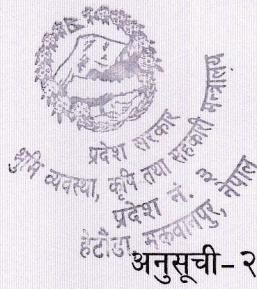 प्रदेश सरकार
भूमि व्यवस्था, कृषि तथा सहकारी मन्त्रालय
प्रदेश नं. ३
हेटौंडा, मकवानपुर, नेपाल
अनुसूची-२